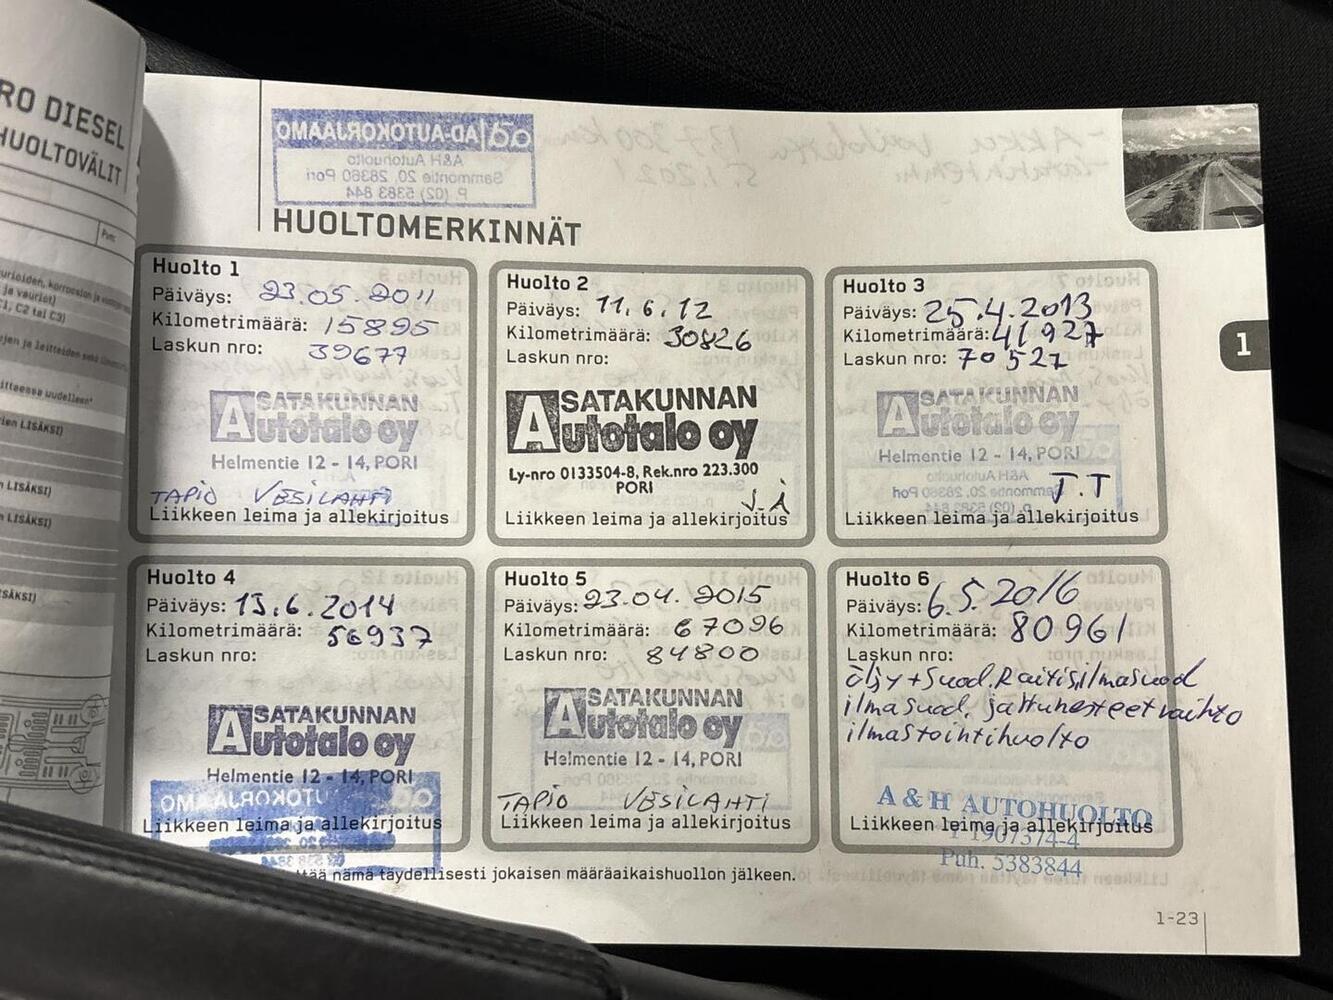 RO DIESEL
HUOLTOVÄLIT
Pvm:
C1, C2 tai C3)
LISÄKSI)
LISÄKSI)
LISÄKSI)
HUOLTOMERKINNÄT
1
Huolto 1
Päiväys: 23.05.2011
Kilometrimäärä: 15895
Laskun nro: 39677
SATAKUNNAN
Autotalo oy
Helmentie 12 - 14, PORI
TAPIO VESILAHTI
Liikkeen leima ja allekirjoitus
Huolto 2
Päiväys: 11.6.12
Kilometrimäärä: 30826
Laskun nro:
SATAKUNNAN
Autotalo oy
Ly-nro 0133504-8, Rek.nro 223.300
PORI
J.Ä
Liikkeen leima ja allekirjoitus
Huolto 3
Päiväys: 25.4.2013
Kilometrimäärä: 41927
Laskun nro: 70527
SATAKUNNAN
Autotalo oy
Helmentie 12 - 14, PORI
J.T
Liikkeen leima ja allekirjoitus
Huolto 4
Päiväys: 13.6.2014
Kilometrimäärä: 56937
Laskun nro:
SATAKUNNAN
Autotalo oy
Helmentie 12 - 14, PORI
Liikkeen leima ja allekirjoitus
Huolto 5
Päiväys: 23.04.2015
Kilometrimäärä: 67096
Laskun nro: 84800
SATAKUNNAN
Autotalo oy
Helmentie 12 - 14, PORI
TAPIO VESILAHTI
Liikkeen leima ja allekirjoitus
Huolto 6
Päiväys: 6.5.2016
Kilometrimäärä: 80961
Laskun nro:
öljy + Suod. Raitisilmasuod
ilmasuod. jattunesteet vaihto
ilmastointihuolto
A & H AUTOHUOLTO
Liikkeen leima ja allekirjoitus
1907374-4
Puh. 5383844
nämä täydellisesti jokaisen määräaikaishuollon jälkeen.
1-23